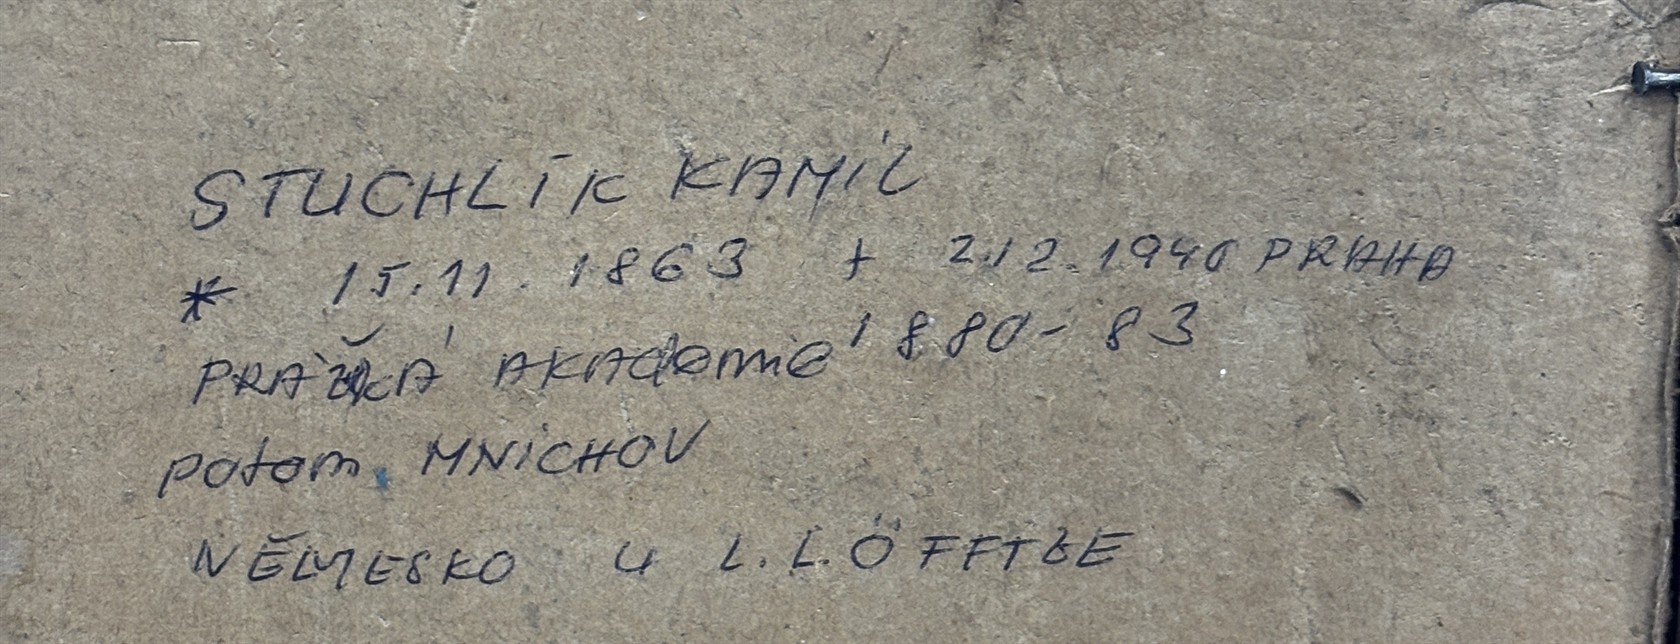 STUCHLÍK KAMIL
* 15.11.1863 + 2.12.1940 PRAHA
PRAŽSKÁ AKADEMIE 1880-83
potom MNICHOV
NĚMESKO u L. LÖFFTZE